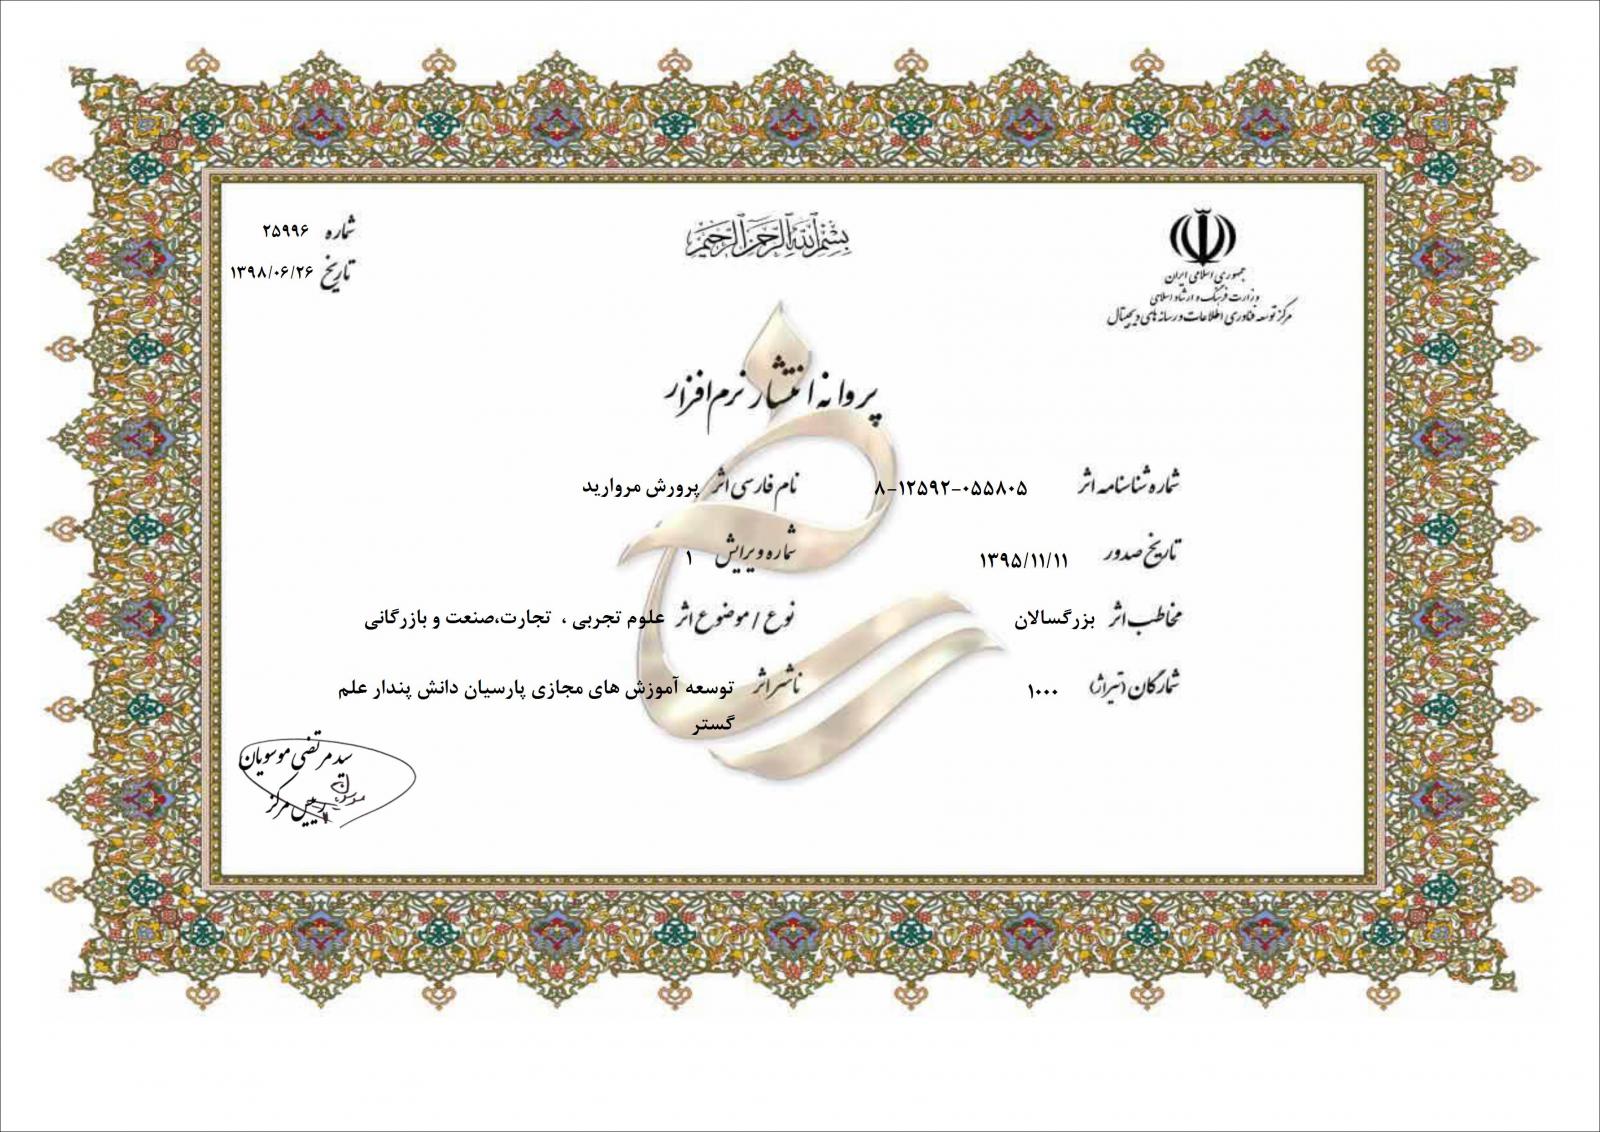 بسم الله الرحمن الرحیم
جمهوری اسلامی ایران
وزارت فرهنگ و ارشاد اسلامی
مرکز توسعه فناوری اطلاعات و رسانه های دیجیتال
شماره ۲۵۹۹۶
تاریخ ۱۳۹۸/۰۶/۲۶
پروانه انتشار نرم افزار
شماره شناسنامه اثر ۸-۱۲۵۹۲-۰۵۵۸۰۵
نام فارسی اثر پرورش مروارید
تاریخ صدور ۱۳۹۵/۱۱/۱۱
شماره ویرایش ۱
مخاطب اثر بزرگسالان
نوع / موضوع اثر علوم تجربی ، تجارت،صنعت و بازرگانی
شمارگان (تیراژ) ۱۰۰۰
ناشر اثر توسعه آموزش های مجازی پارسیان دانش پندار علم
گستر
سید مرتضی موسویان
رییس مرکز